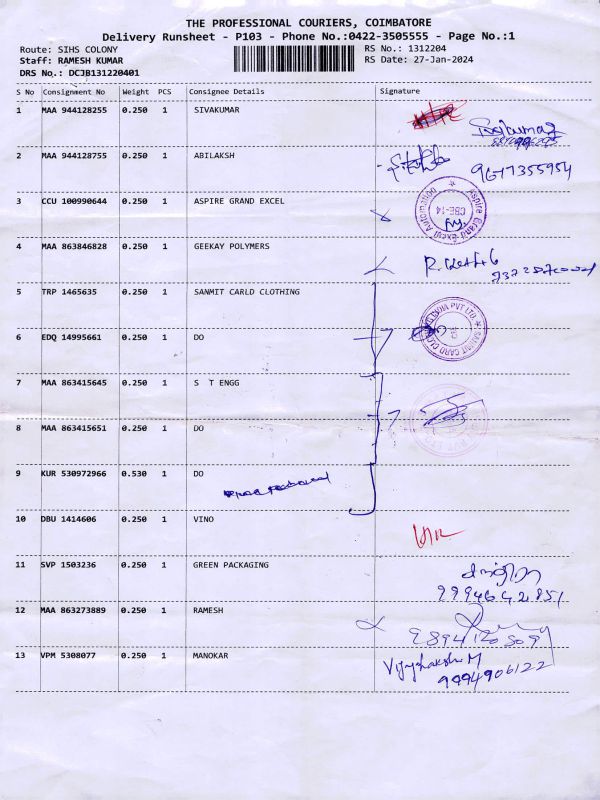 THE PROFESSIONAL COURIERS, COIMBATORE
Delivery Runsheet - P103 - Phone No.:0422-3505555 - Page No.:1
Route: SIHS COLONY RS No.: 1312204
Staff: RAMESH KUMAR RS Date: 27-Jan-2024
DRS No.: DCJB131220401
S No Consignment No Weight PCS Consignee Details Signature
1 MAA 944128255 0.250 1 SIVAKUMAR
2 MAA 944128755 0.250 1 ABILAKSH 9677355954
3 CCU 100990644 0.250 1 ASPIRE GRAND EXCEL Aspire Grand Excel Automation CBE-14
4 MAA 863846828 0.250 1 GEEKAY POLYMERS
5 TRP 1465635 0.250 1 SANMIT CARLD CLOTHING
6 EDQ 14995661 0.250 1 DO
7 MAA 863415645 0.250 1 S T ENGG
8 MAA 863415651 0.250 1 DO
9 KUR 530972966 0.530 1 DO
10 DBU 1414606 0.250 1 VINO
11 SVP 1503236 0.250 1 GREEN PACKAGING
9994642851
12 MAA 863273889 0.250 1 RAMESH
13 VPM 5308077 0.250 1 MANOKAR Vijayalakshmi M
9994906122